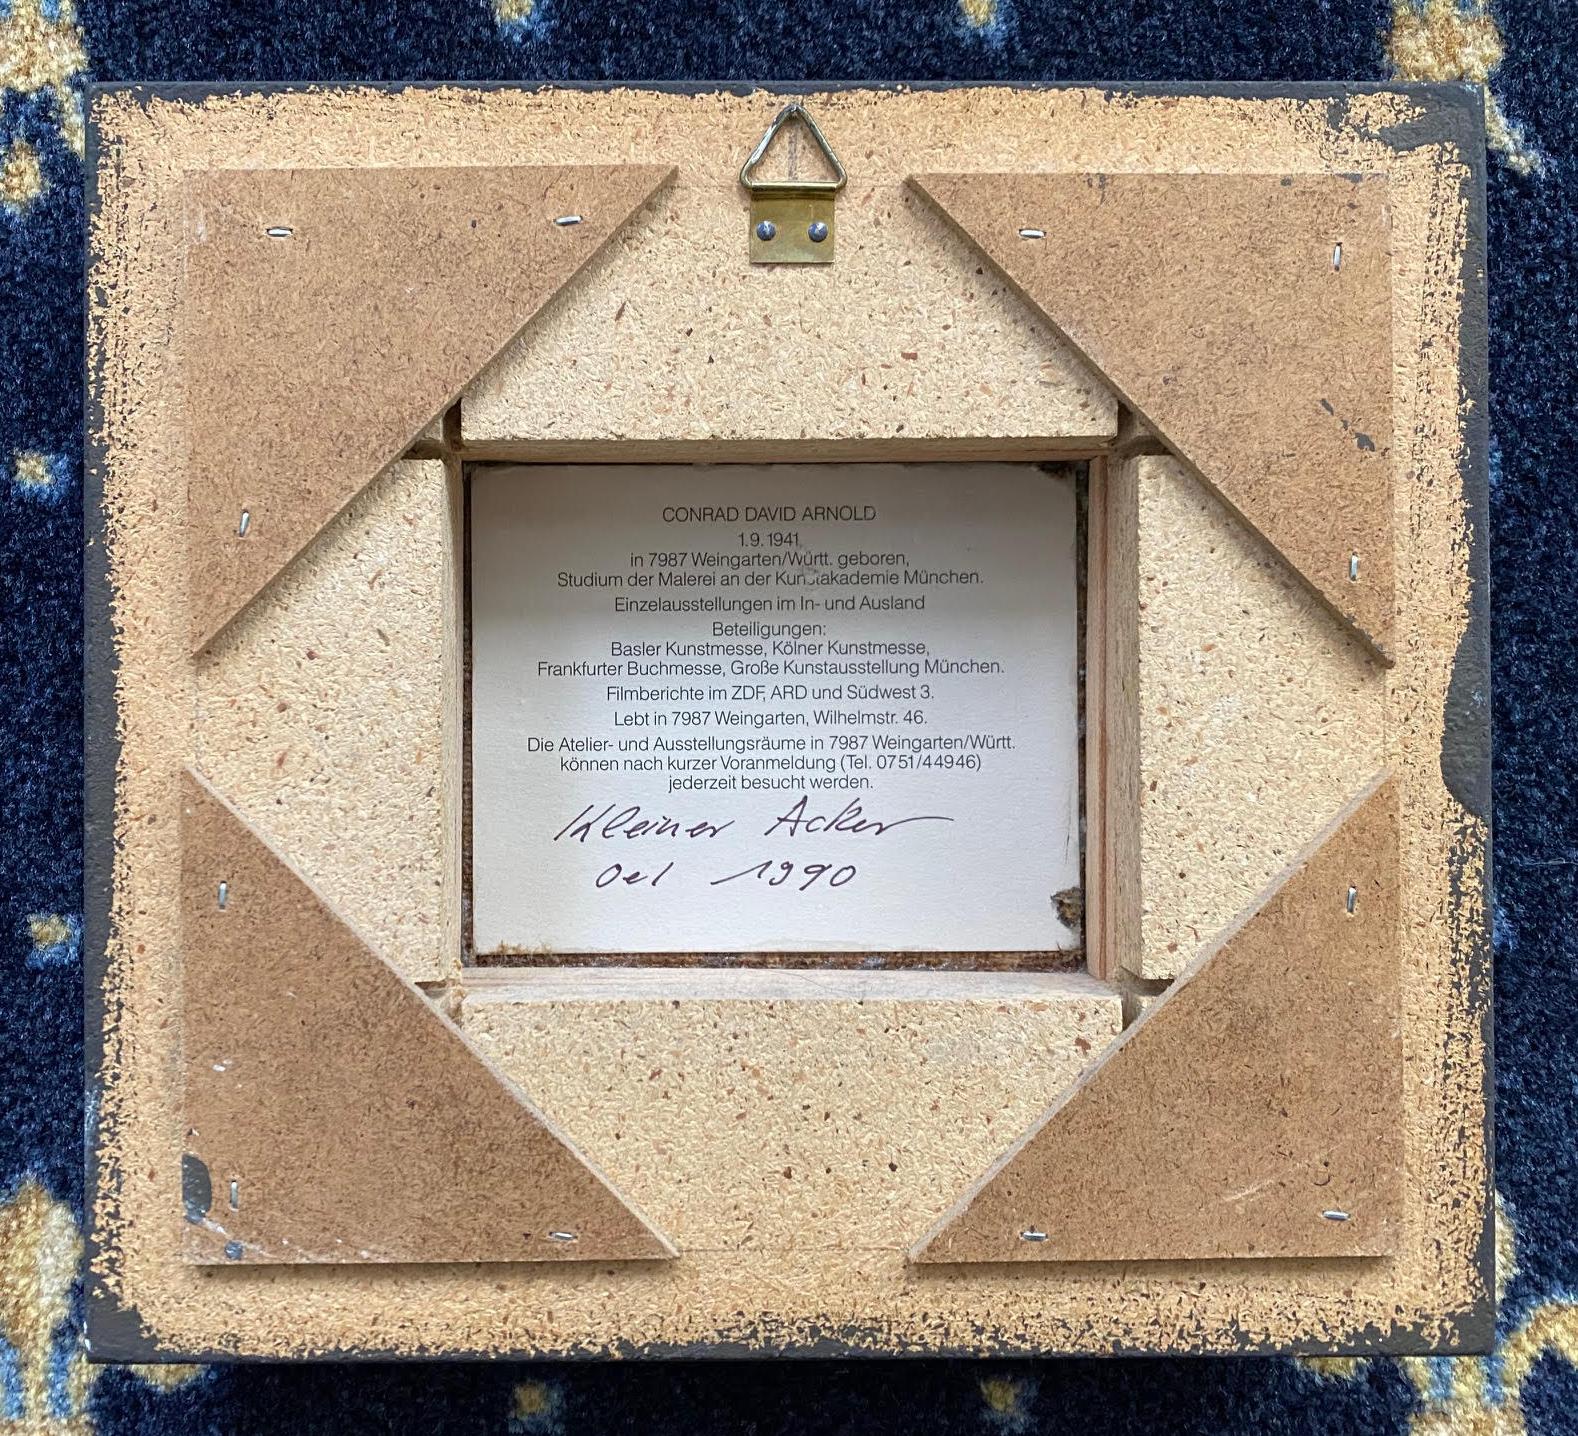 CONRAD DAVID ARNOLD
1.9.1941,
in 7987 Weingarten/Württ. geboren,
Studium der Malerei an der Kunstakademie München.
Einzelausstellungen im In- und Ausland
Beteiligungen:
Basler Kunstmesse, Kölner Kunstmesse,
Frankfurter Buchmesse, Große Kunstausstellung München.
Filmberichte im ZDF, ARD und Südwest 3.
Lebt in 7987 Weingarten, Wilhelmstr. 46.
Die Atelier- und Ausstellungsräume in 7987 Weingarten/Württ.
können nach kurzer Voranmeldung (Tel. 0751/44946)
jederzeit besucht werden.
Kleiner Acker
Oel 1990